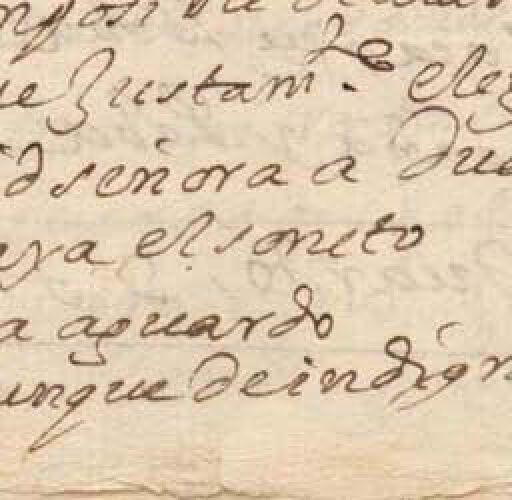 ue Justam.te eleg
id señora a due
aya el soneto
a aguardo
unque de indign